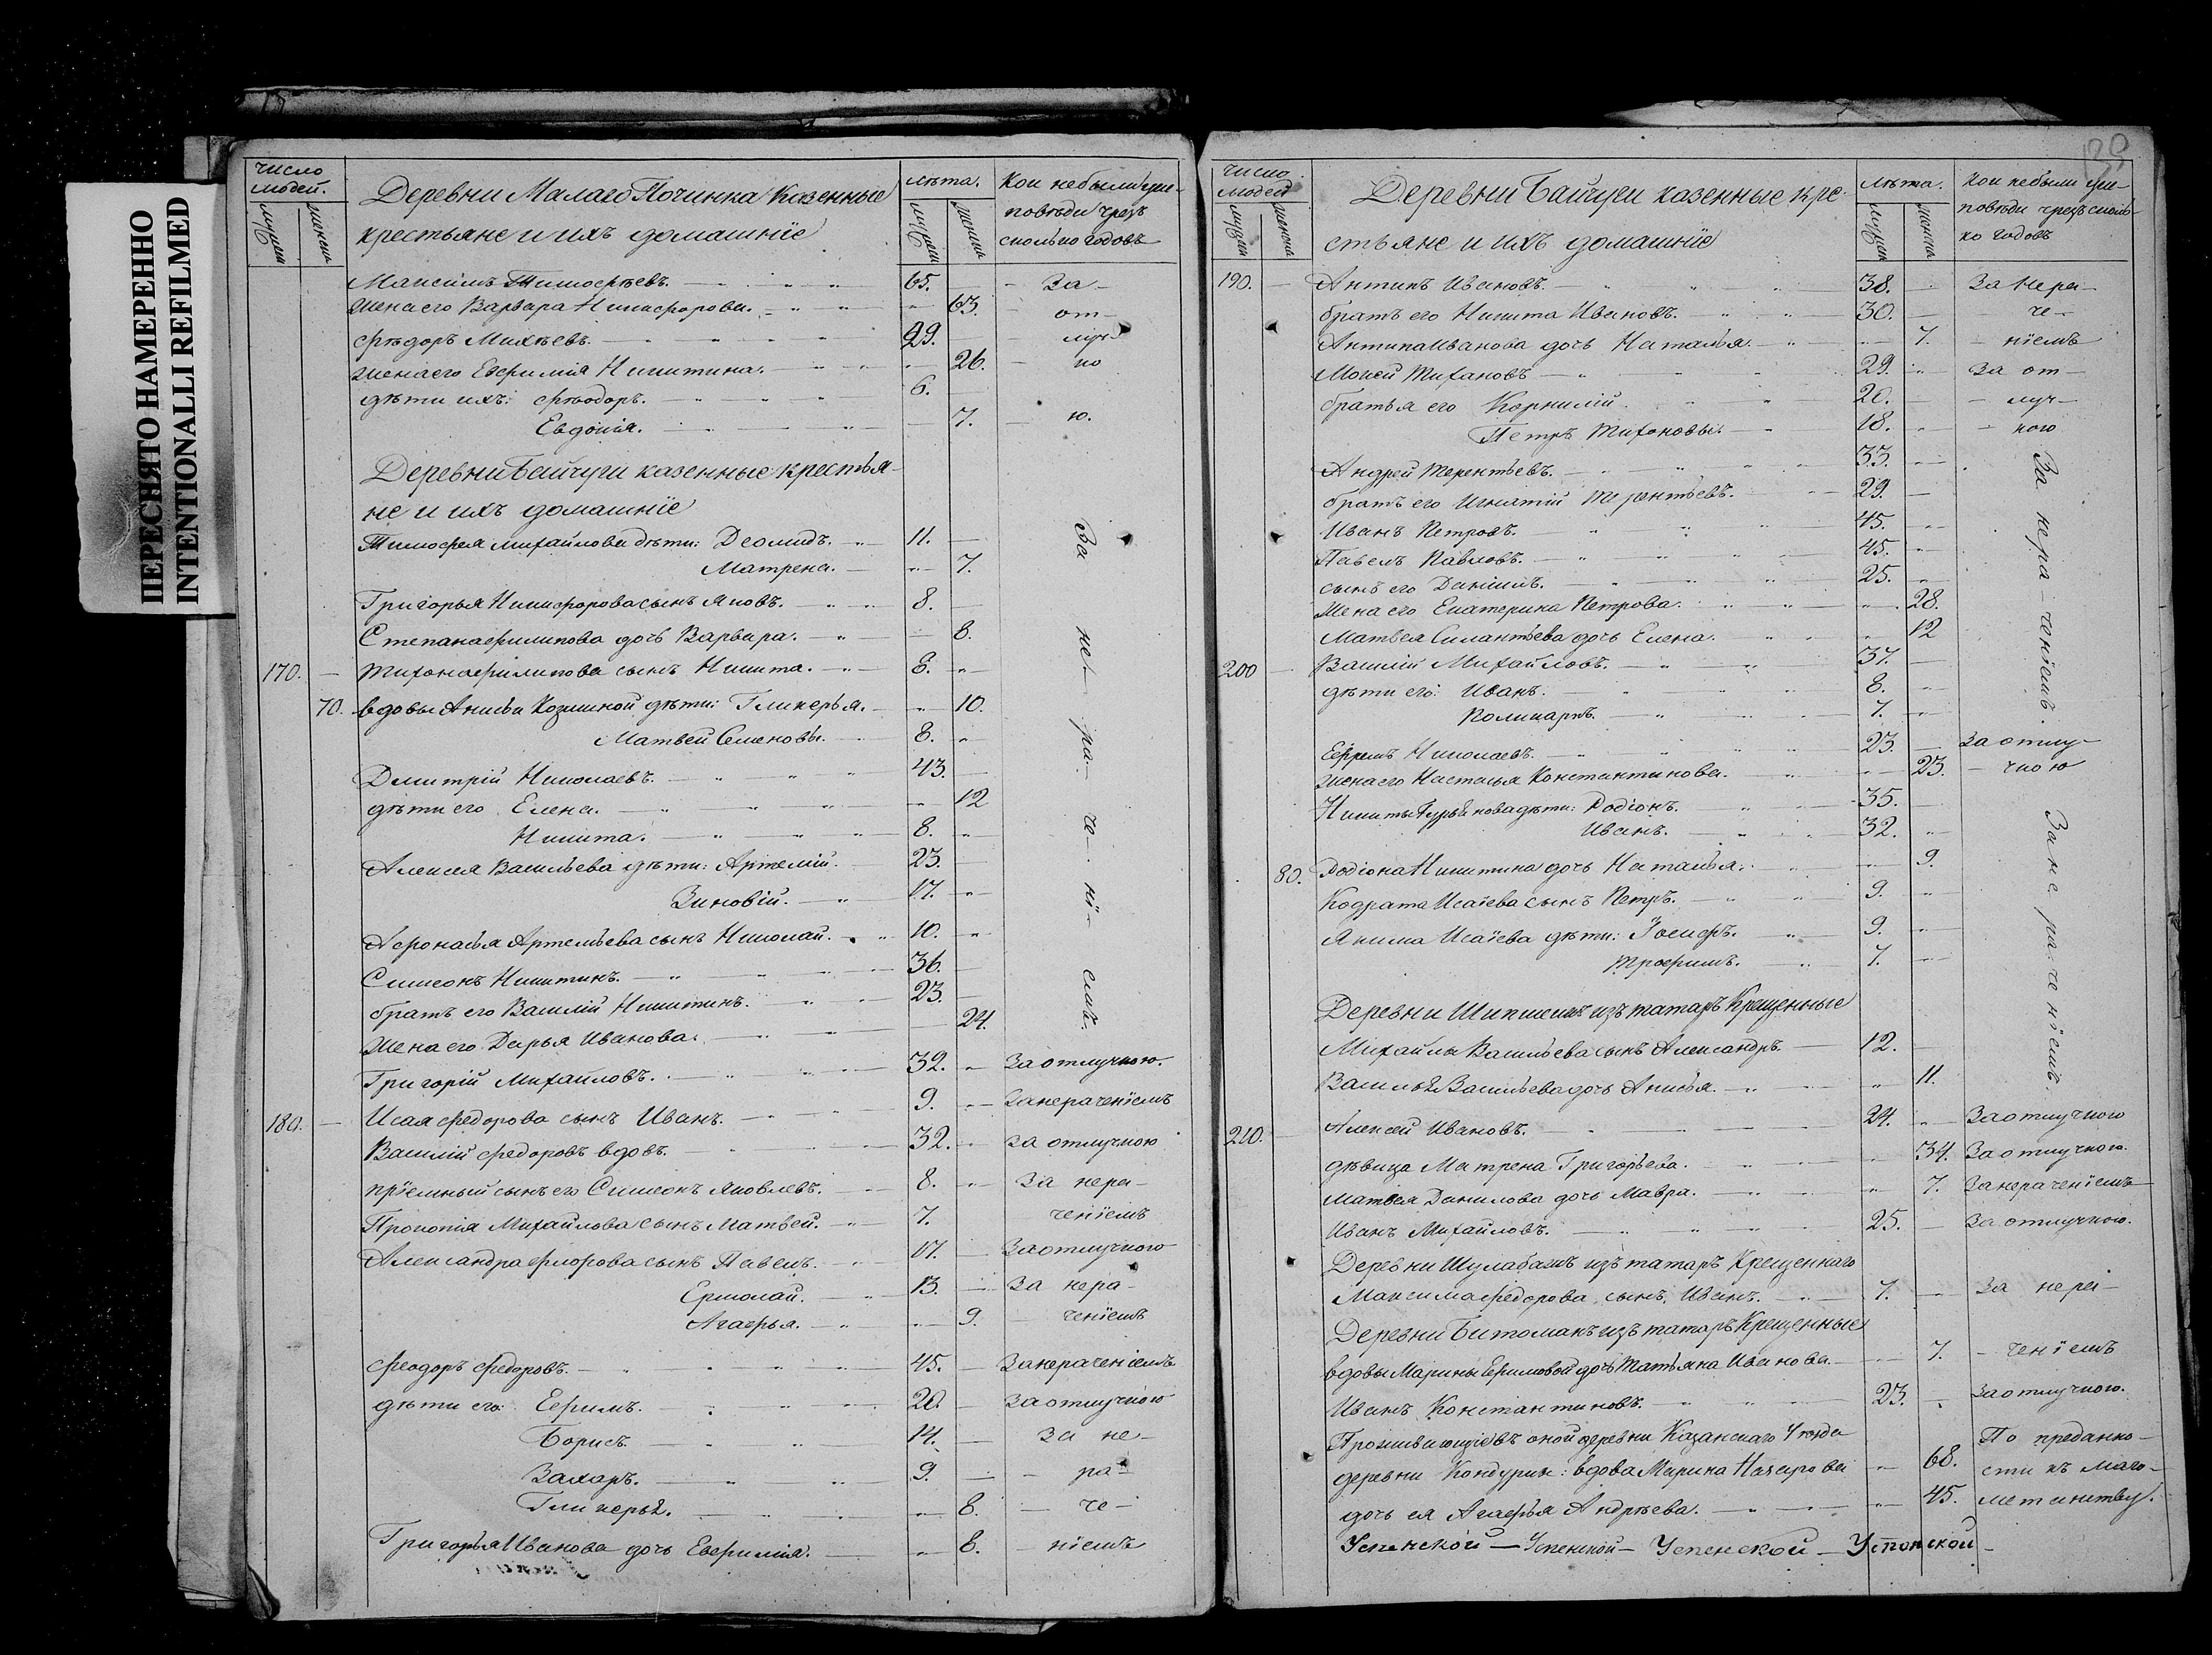 ПЕРЕСНЯТО НАМЕРЕННО
INTENTIONALLI REFILMED
число людей. мужеска женска
Деревни Малаго Починка Казенные
крестьяне и ихъ домашніе
лѣта. мужеска женска
Кои небыли у ис-
повѣди чрезъ
сколько годовъ
Максимъ Тимоѳѣевъ. 65. За
жена его Варвара Никифорова. 63. от-
Ѳѣдоръ Михѣевъ. 29. луч
жена его Евфимія Никитина. 26. но
дѣти ихъ: Ѳѣодоръ. 6.
Евдокія. 7. ю.
Деревни Байчуги казенные крестья-
не и ихъ домашніе
Тимофея Михайлова дѣти: Деомидъ. 11.
Матрена. 7.
Григорья Никифорова сынъ Яковъ. 8.
Степана Филипова дочь Варвара. 8.
170. Тихона Филипова сынъ Никита. 8.
70. вдовы Анисьи Козминой дѣти: Гликерья. 10.
Матвей Семеновы. 8.
Дмитрій Николаевъ. 43.
дѣти его Елена. 12
Никита. 8.
Алексея Васильева дѣти: Артемій. 23.
Зиновій. 17.
Афонасья Артемьева сынъ Николай. 10.
Симеонъ Никитинъ. 36.
братъ его Василій Никитинъ. 23.
Жена его Дарья Иванова. 24.
За не ра че ні емъ.
Григорій Михайловъ. 32. За отлучкою.
180. Исая Федорова сынъ Иванъ. 9. Занераченіемъ
Василій Федоровъ вдовъ. 32. За отлучкою
пріемный сынъ его Симеонъ Яковлевъ. 8. За нера-
Прокопія Михайлова сынъ Матвей. 7. ченіемъ
Александра Флорова сынъ Павелъ. 17. Заотлучкою
Ермолай. 13. За нера-
Агафья. 9. ченіемъ
Феодоръ Федоровъ. 45. Занераченіемъ
дѣти его: Ефимъ. 20. Заотлучкою
Борисъ. 14. За не-
Захаръ. 9. ра-
Гликерья. 8. че-
Григорья Иванова дочь Евфимія. 8. ніемъ
число людей мужеска женска
Деревни Байчуги казенные кре-
стьяне и ихъ домашніе
лѣта. мужеска женска
Кои небыли у ис-
повѣди чрезъ сколь-
ко годовъ
190. Антипъ Ивановъ. 38. За нера-
братъ его Никита Ивановъ. 30. че-
Антипа Иванова дочь Наталья. 7. ніемъ
Моисей Тихановъ 29. За от-
братья его Корнилій. 20. луч-
Петръ Тихоновы. 18. кою
Андрей Терентьевъ. 33.
братъ его Игнатій Терентьевъ. 29.
Иванъ Петровъ. 45.
Павелъ Павловъ. 45.
сынъ его Даніилъ. 25.
Жена его Екатерина Петрова. 28.
Матвея Силантьева дочь Елена. 12
200 Василій Михайловъ. 37.
дѣти его: Иванъ. 8.
Поликарпъ. 7.
За нера-ченіемъ.
Ефремъ Николаевъ. 23. За отлу-
жена его Настасья Константинова. 23. чкою
Никиты Гурьянова дѣти: Родіонъ. 35.
Иванъ. 32.
80. Родіона Никитина дочь Наталья. 9.
Кодрата Исаіева сынъ Петръ. 9.
Якима Исаіева дѣти: Іосифъ. 9.
Трофимъ. 7.
Деревни Шипшекъ изъ татаръ Крещенные
Михайлы Васильева сынъ Александръ. 12.
Василья Васильева дочь Анисья. 11.
За не ра-че ніемъ
210. Алексей Ивановъ. 24. Заотлучкою
дѣвица Матрена Григорьева. 34. Заотлучкою.
Матвея Данилова дочь Мавра. 7. Занераченіемъ
Иванъ Михайловъ. 25. За отлучкою.
Деревни Шулабашъ изъ татаръ Крещеннаго
Максима Федорова сынъ, Иванъ. 7. За нера-
Деревни Битоманъ изъ татаръ Крещенные
вдовы Марины Ефимовой дочь Татьяна Иванова. 7. ченіемъ
Иванъ Константиновъ. 23. Заотлучкою.
Проживающіе въ оной деревни Казанскаго Уѣзда По преданно-
деревни Кондурки: вдова Марина Назарова 68. сти къ маго-
дочь ея Агафья Андрѣева. 45. метанству.
Успенской — Успенской — Успенской — Успенской